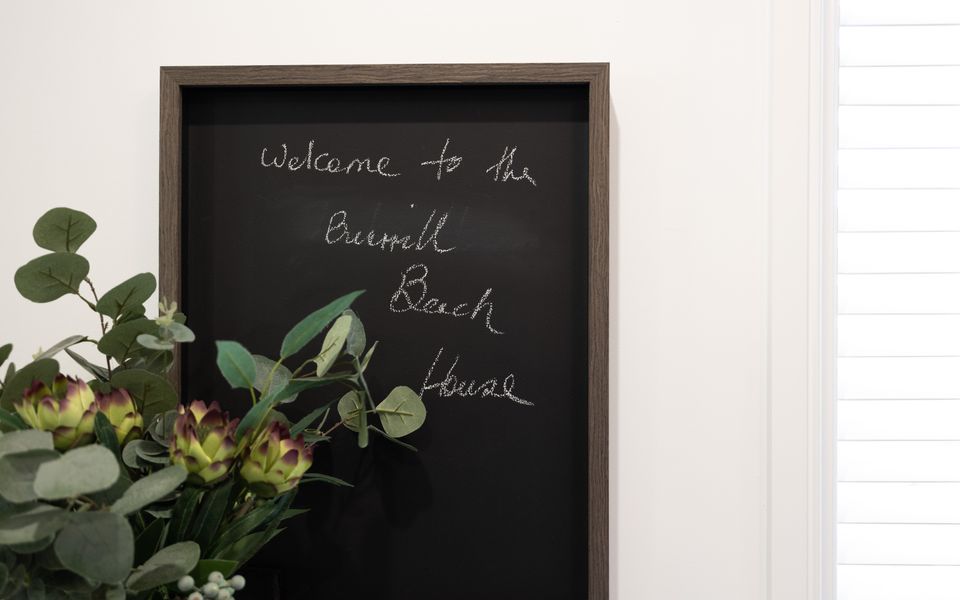 Welcome to the
Burrill
Beach
House